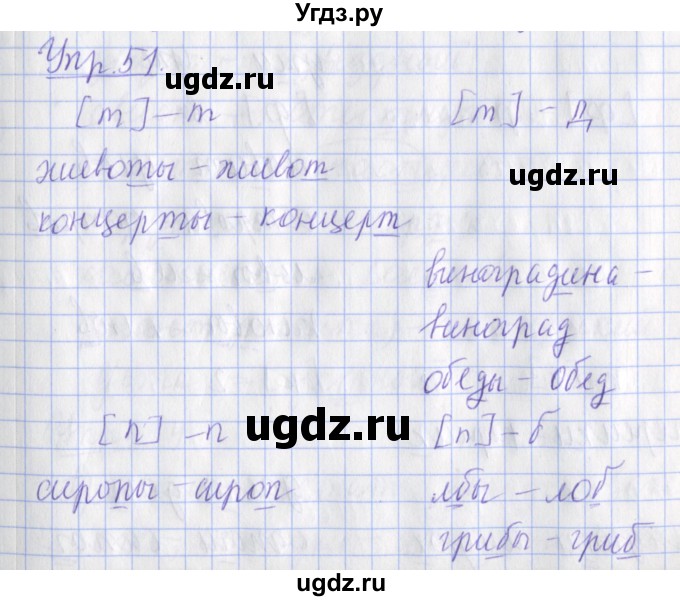 Угдз.ру
Упр.51.
ugdz.ru
[т] – т
[т] – д
ugdz.ru
животы – живот
концерты – концерт
виноградина –
виноград
обеды – обед
[п] – п
ugdz.ru
[п] – б
сиропы – сироп
лбы – лоб
грибы – гриб
ugdz.ru
ugdz.ru